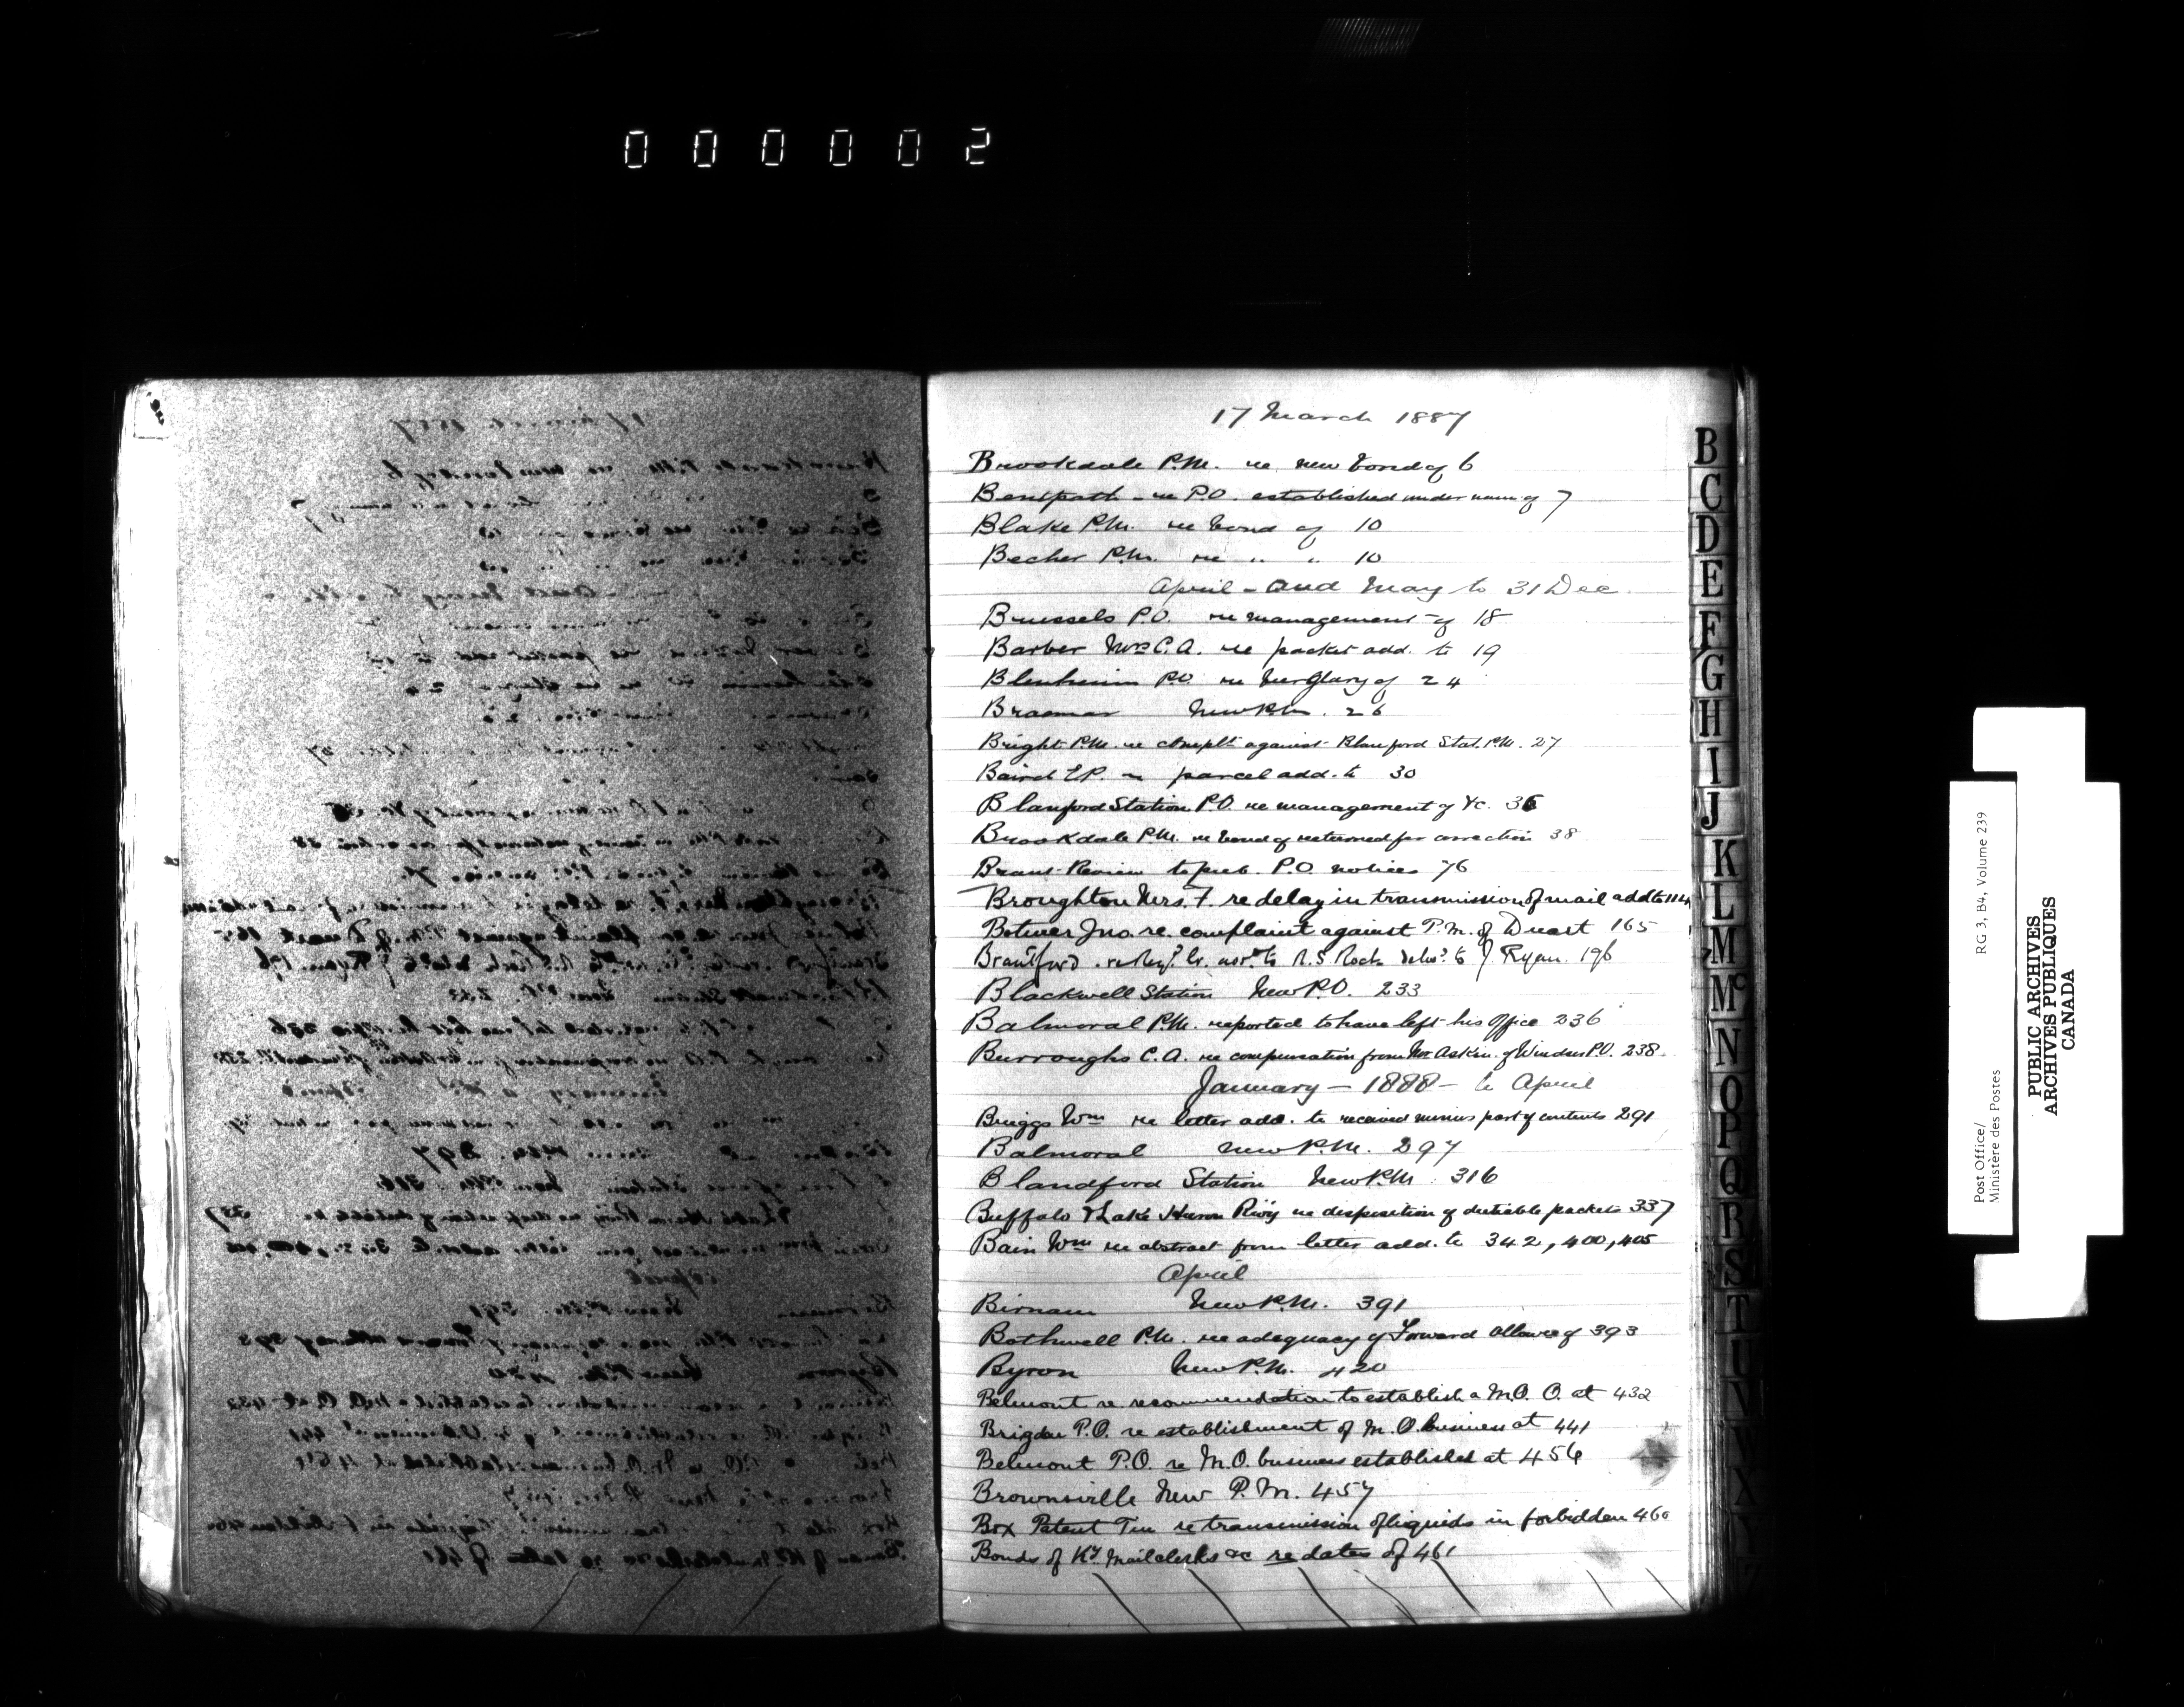 000002
17 March 1887
Brookdale P.M. re new bond of 6
re P.O. established under name of 7
Blake P.M. re bond of 10
Becher P.M. re " " 10
April - and May to 31 Dec.
Brussels P.O. re management of 18
Barber Mrs C.A. re packet add. to 19
Blenheim P.O. re burglary of 24
Braemar New P.M. 26
Bright P.M. re complt against Blanford Stat. P.M. 27
Baird E.P. re parcel add. to 30
Blanford Station P.O. re management of &c. 36
Brookdale P.M. re bond of returned for correction 38
Brant Review to pub. P.O. notices 76
Broughton Mrs. F. re delay in transmission of mail add to 114
Jno. re. complaint against P.M. of Duart 165
Brantford . re Regd. lr. to R.S. Rock to J Ryan. 196
Blackwell Station New P.O. 233
Balmoral P.M. reported to have left his Office 236
Burroughs C.A. re compensation from Mr Askin of Windsor P.O. 238
January - 1888 - to April
Briggs Wm re letter add. to received minus part of contents 291
Balmoral New P.M. 297
Blandford Station New P.M. 316
Buffalo & Lake Huron Rwy re disposition of dutiable packets 337
Bain Wm re abstract from letter add. to 342, 400, 405
April
Birnam New P.M. 391
Bothwell P.M. re adequacy of Forward allowce of 393
Byron New P.M. 420
Belmont re. recommendation to establish a M.O. O. at 432
Brigden P.O. re establishment of M.O. business at 441
Belmont P.O. re M.O. business established at 456
Brownsville New P.M. 457
Box Patent Tin re transmission of liquids in forbidden 460
Bonds of Ry. Mail clerks &c re dates of 461
B
C
D
E
F
G
H
I
J
K
L
M
Mc
N
O
P
Q
R
S
T
U
V
W
X
Y
Post Office/ RG 3, B4, Volume 239
Ministère des Postes
PUBLIC ARCHIVES
ARCHIVES PUBLIQUES
CANADA